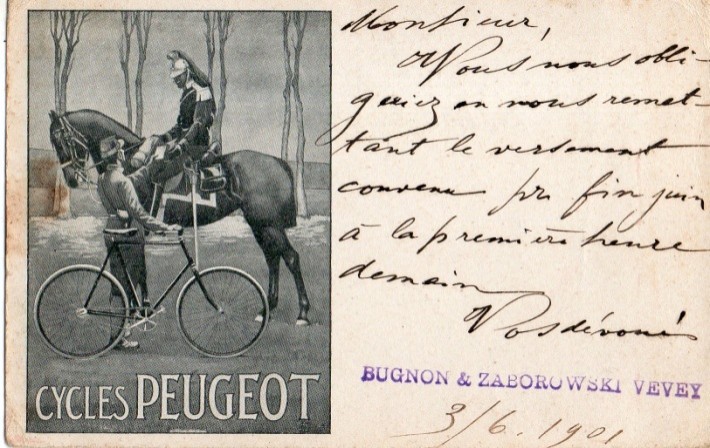 Monsieur,
Vous nous obli-
geriez en nous remet-
tant le versement
convenu pr fin juin
à la première heure
demain
Vos dévoués
BUGNON & ZABOROWSKI VEVEY
3/6. 1901
CYCLES PEUGEOT